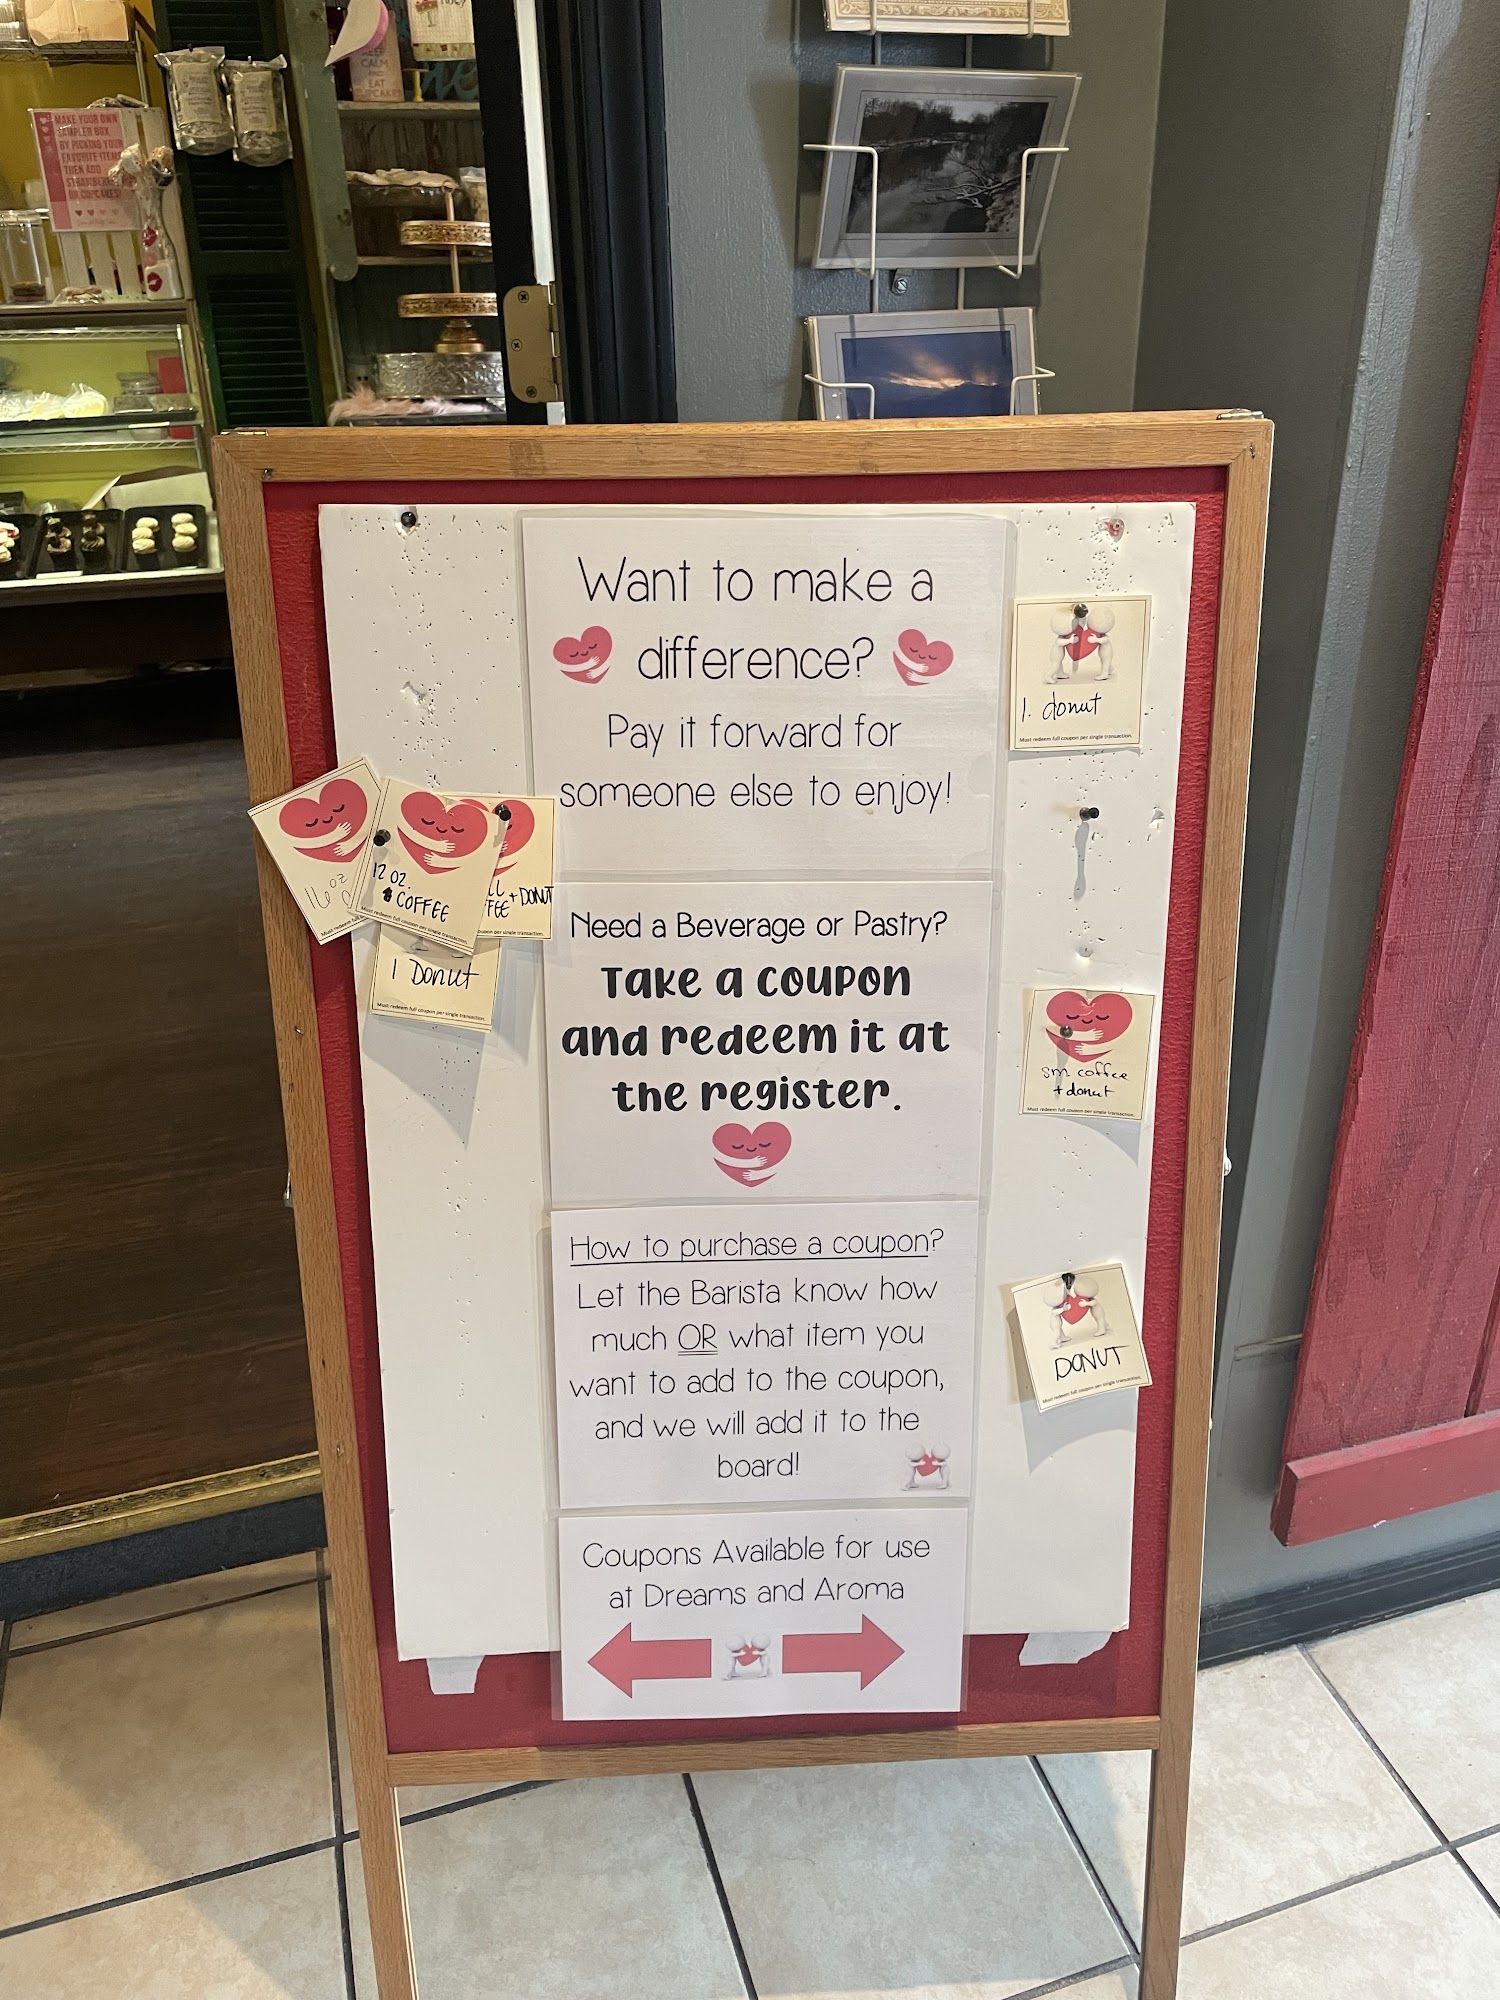 KEEP
CALM
AND
EAT
CUPCAKES
MAKE YOUR OWN
SAMPLER BOX
BY PICKING YOUR
FAVORITE ITEMS
THEN ADD
STRAWBERRIES
OR CUPCAKES!
Want to make a
difference?
Pay it forward for
someone else to enjoy!
1. donut
Must redeem full coupon per single transaction.
16 oz
Must redeem full
12 oz.
COFFEE
Must redeem full coupon per single transaction.
+ DONUT
coupon per single transaction.
1 Donut
Must redeem full coupon per single transaction.
Need a Beverage or Pastry?
Take a coupon
and redeem it at
the register.
sm. coffee
+ donut
Must redeem full coupon per single transaction.
How to purchase a coupon?
Let the Barista know how
much OR what item you
want to add to the coupon,
and we will add it to the
board!
DONUT
Must redeem full coupon per single transaction.
Coupons Available for use
at Dreams and Aroma